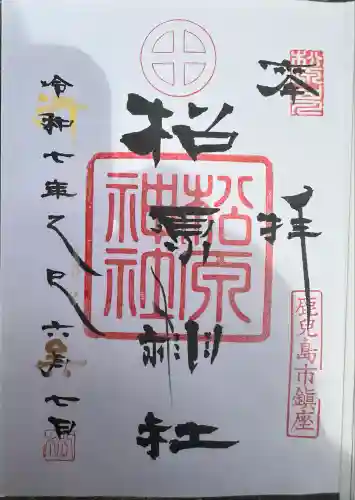 奉拝
松原神社
鹿児島市鎮座
松原神社
令和七年乙巳六月七日